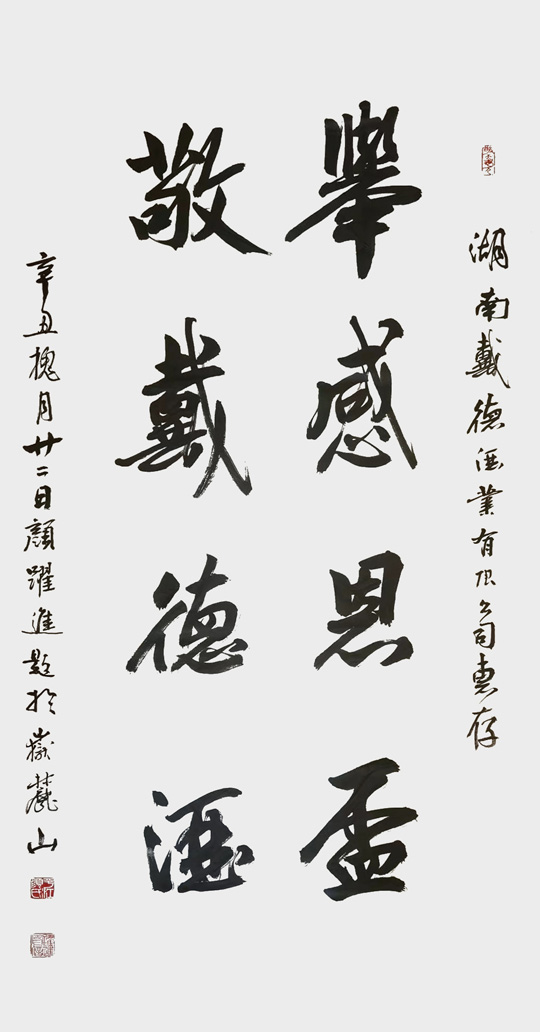 湖南戴德酒業有限公司惠存
舉感恩盃
敬戴德酒
辛丑槐月廿二日顏躍進題於嶽麓山